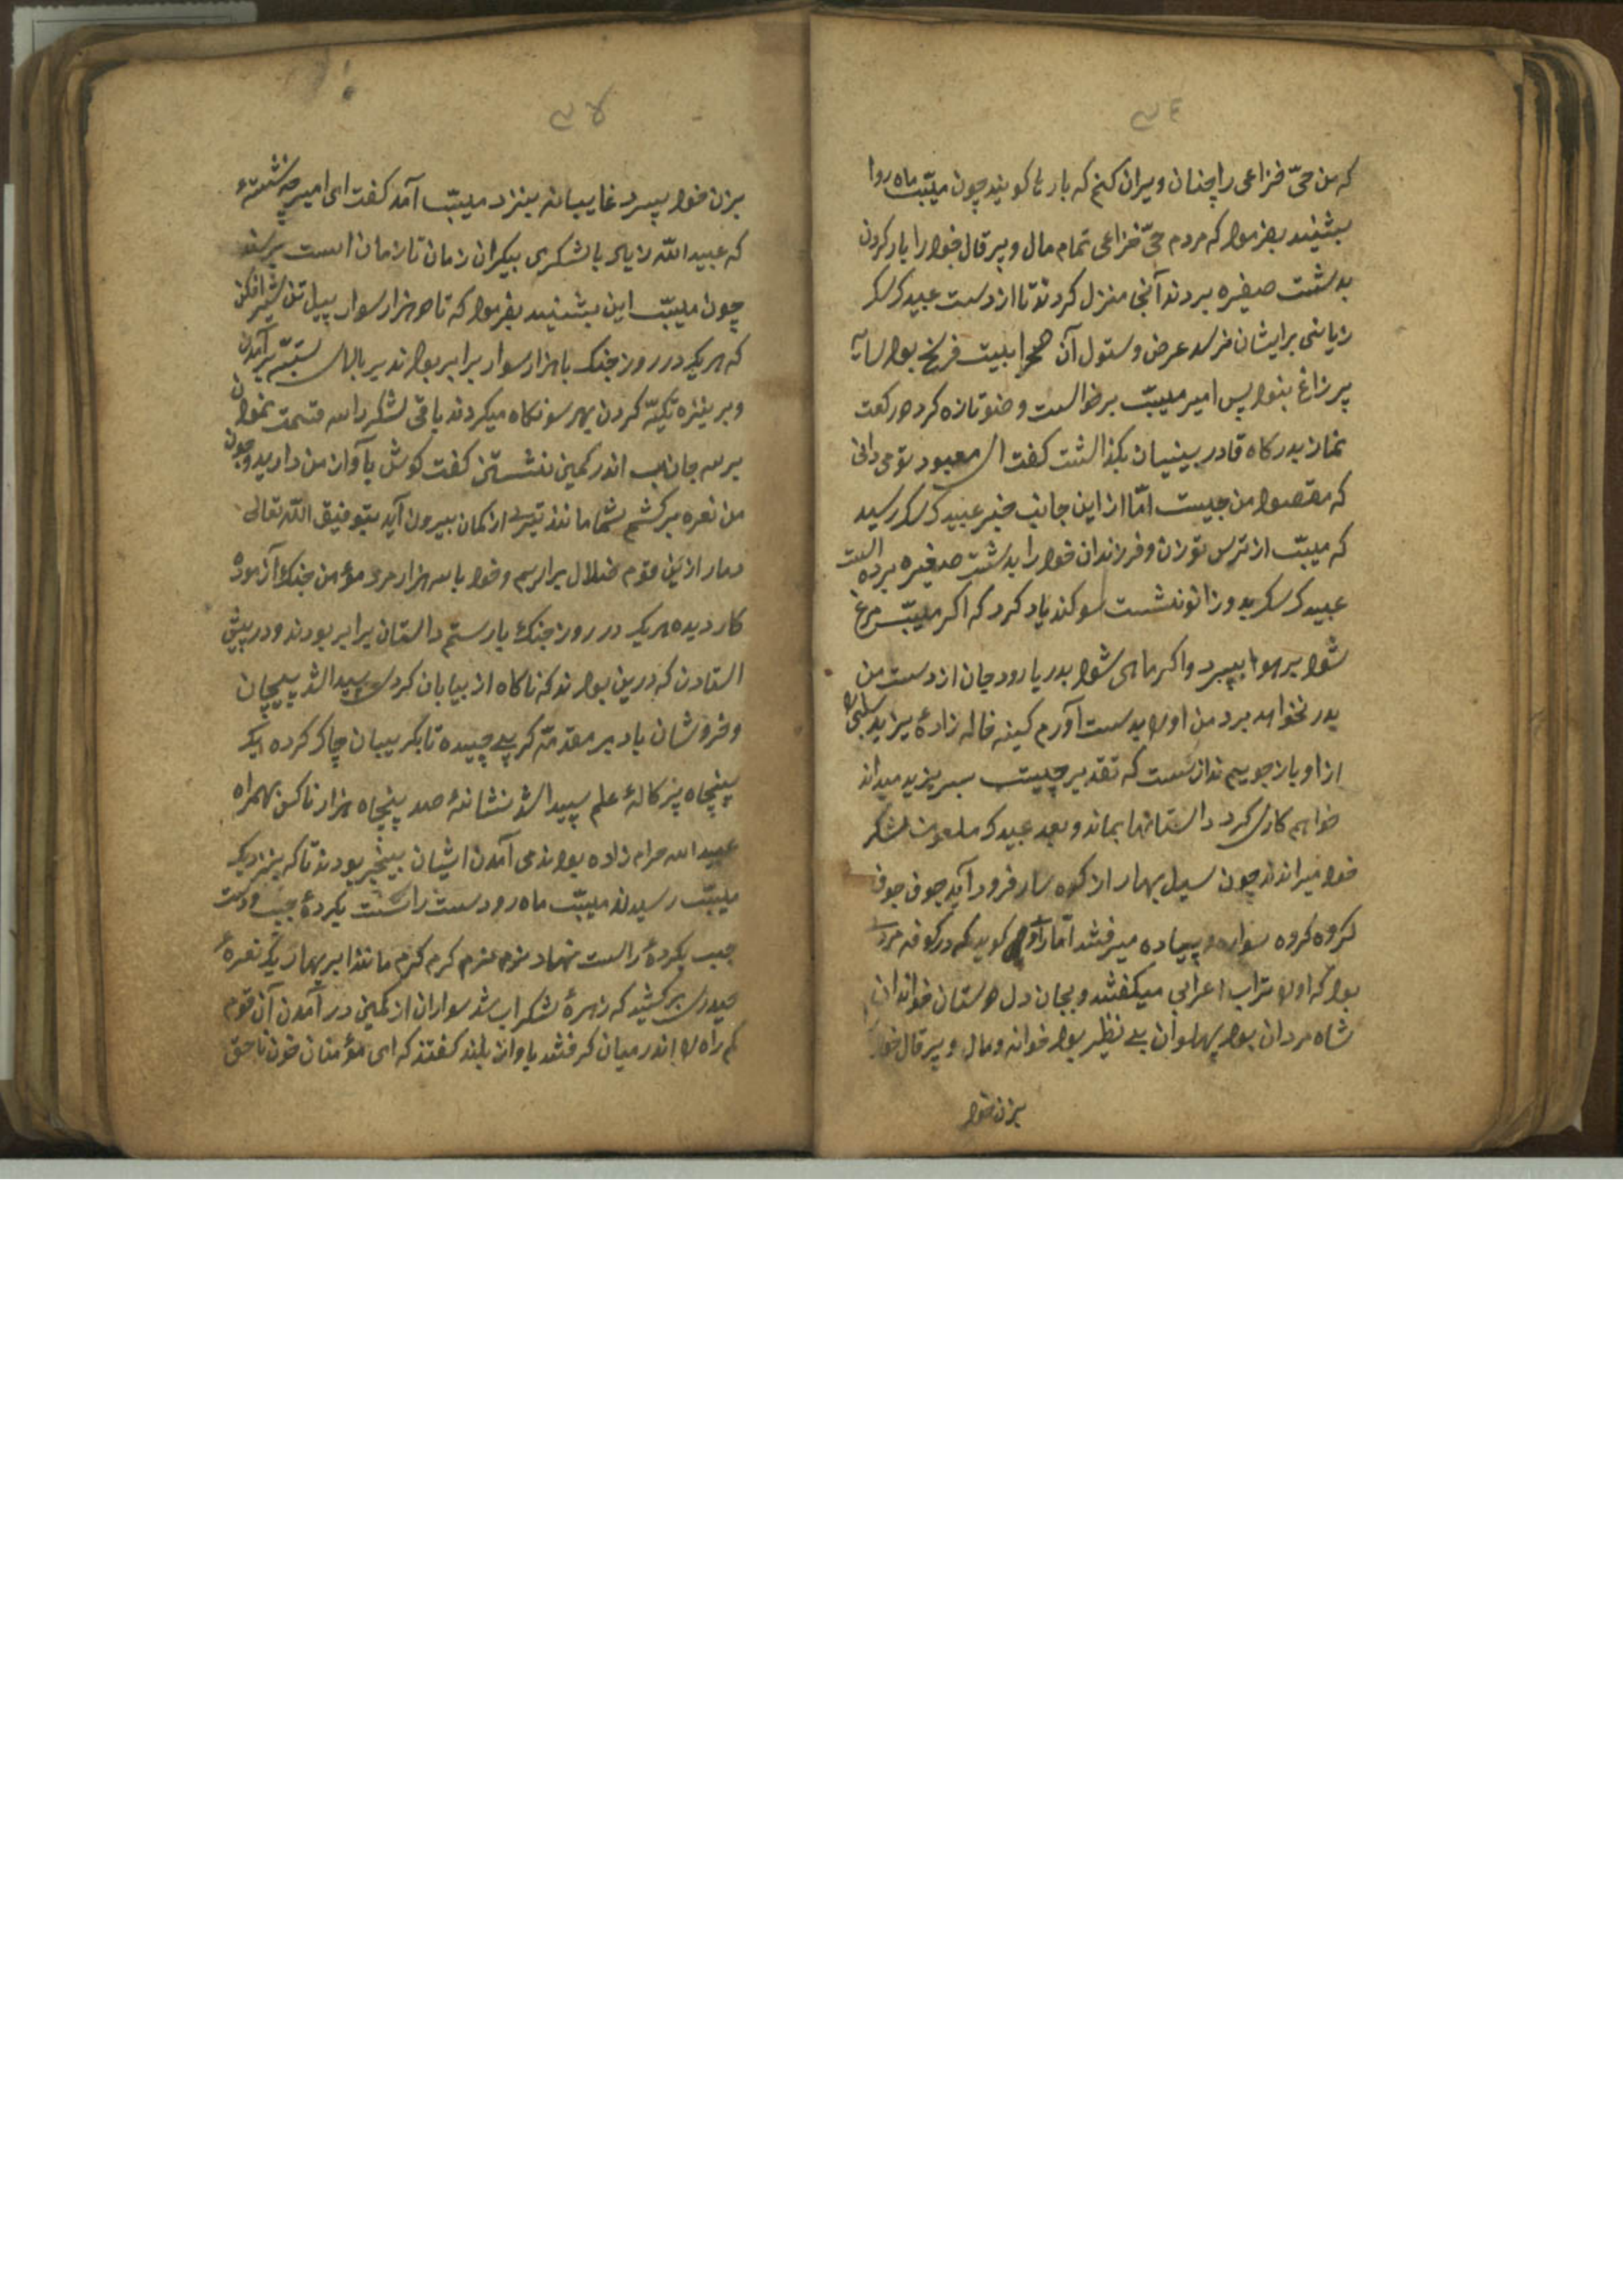 که من حیّ خزاعی را چنان ویران کنم که بازها گویند چون مسیّب ماه روا
بشنید بفرمود که مردم حیّ خزاعی تمام مال و پرقال خود را بار کردن
بدشت صغیره بردند آنجا منزل کردند تا از دست عبیدک سکر
زیانی برایشان نرسد عرض و ستول آن صحرا بیست فرسخ بود سایه
پر زاغ بنود پس امیر مسیّب برخواست وضو تازه کرد دو رکعت
نماز بدرکاه قادر بینیان بکذاشت کفت ای معبود تو می دانی
که مقصود من چیست امّا از این جانب خبر عبیدک سکر رسید
که مسیّب از ترس تو زن و فرزندان خود را بدشت صغیره برده است
عبیدک سکر بدو زانو نشست سوکند یاد کرد که اکر مسیّب مرغ
شود بر هوا بپرد و اکر ماهی شود بدریا رود جان از دست من
بدر نخواهد برد من اورا بدست آورم کینه خاله زادهٔ یزید
از او باز جویم ندانست که تقدیر چیست بسر یزید میداند
خواهم کاری کرد داستانها بماند و بعد عبیدک ملعون لشکر
خود میراندند چون سیل بهار از کوه سار فرود آید جوف جوف
کروه کروه سواره و پیاده میرفتند امّا راوی کوید که در کوفه مردی
بود که اورا تراب اعرابی میکفتند و بجان دل دوستان خواندان
شاه مردان بود پهلوان بی نظیر بود خوانه و مال و پرقال خود
بزن خود
بزن خود بسپرد غایبانه بنزد مسیّب آمد کفت ای امیر چه نشستهٔ
که عبید الله زیاد با لشکری بیکران زمان تا زمان است برسند
چون مسیّب این بشنید بفرمود که تا دو هزار سوار پیل تن شیر افکن
که هر یک در روز جنک با هزار سوار برابر بودند بر بالای پشته برآمدن
و بر نیزه تکیّه کردن بهر سو نکاه میکردند باقی لشکر را سه قسمت نمودن
بر سه جانب اندر کمین نشستن کفت کوش بآواز من دارید و چون
من نعره برکشم شما مانند تیری از کمان بیرون آید بتوفیق اللّه تعالی
دمار از این قوم ضلال برآریم و خود با سه هزار مرد مؤمن جنک آزموده
کار دیده هر یک در روز جنک با رستم داستان برابر بودند و در پیش
استادن که درین بودند که ناکاه از بیابان کردی پیدا شد پیچان
و خروشان باد بر مقدمّه کرد پیچیده تا بکریبان چاک کرده ایک
پنجاه پرکالهٔ علم پیدا شد نشانهٔ صد پنجاه هزار ناکس بهمراه
عبید الله حرام زاده بودند می آمدن ایشان بیخبر بودند تا که بنزدیک
مسیّب رسیدند مسیّب ماه رو دست راست بکردهٔ چپ و دست
چپ بکردهٔ راست نهاد نرم نرم کرم کرم مانند ابر بهار یک نعرهٔ
حیدری برکشید که زهرهٔ لشکر آب شد سواران از کمین در آمدن آن قوم
کم راه را اندر میان کرفتند باواز بلند کفتند که ای مؤمنان خون ناحق